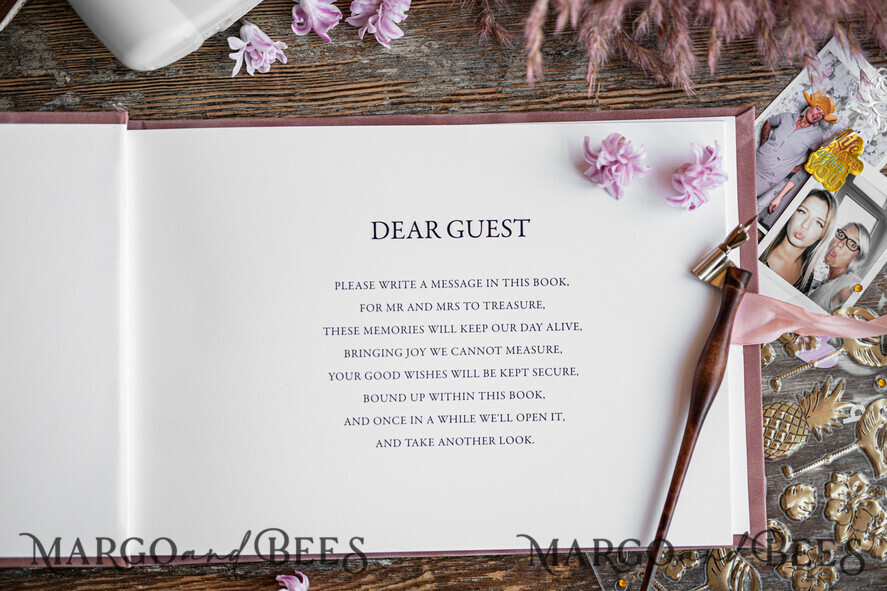 DEAR GUEST
PLEASE WRITE A MESSAGE IN THIS BOOK,
FOR MR AND MRS TO TREASURE,
THESE MEMORIES WILL KEEP OUR DAY ALIVE,
BRINGING JOY WE CANNOT MEASURE,
YOUR GOOD WISHES WILL BE KEPT SECURE,
BOUND UP WITHIN THIS BOOK,
AND ONCE IN A WHILE WE'LL OPEN IT,
AND TAKE ANOTHER LOOK.
MARGO and BEES
MARGO and BEES